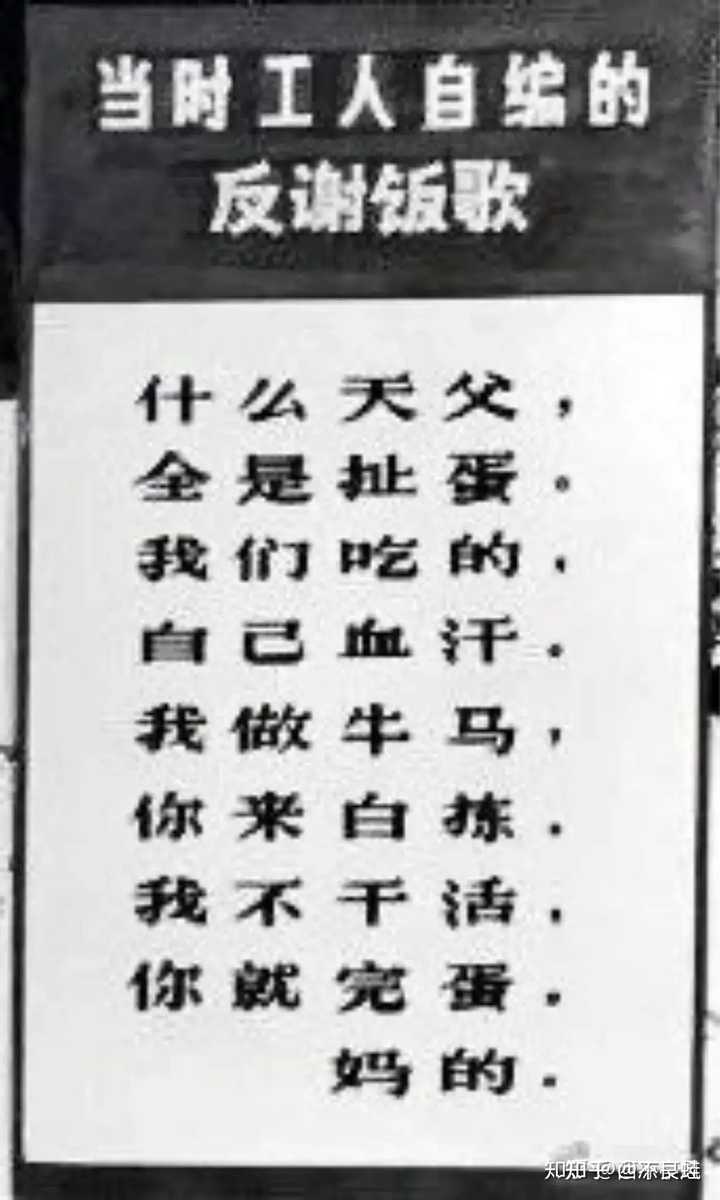 当时工人自编的
反谢饭歌
什么天父，
全是扯蛋。
我们吃的，
自己血汗。
我做牛马，
你来白拣。
我不干活，
你就完蛋。
妈的。